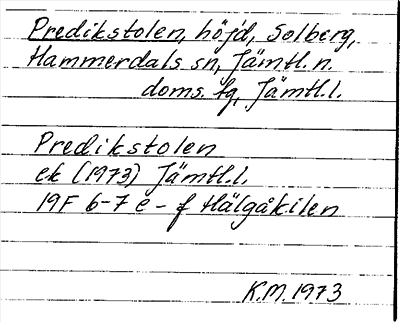 Predikstolen, höjd, Solberg,
Hammerdals sn, Jämtl. n.
doms. fg, Jämtl. l.
Predikstolen
ek (1973) Jämtl. l.
19F 6-7 e - f Hälgåkilen
K.M. 1973